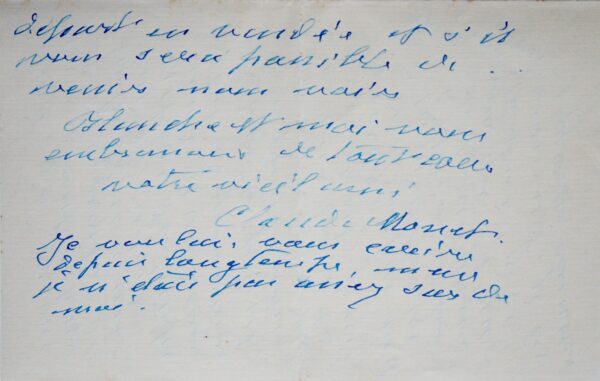 départ en vendée et s'il
vous sera possible de
venir nous voir
Blanche et moi vous
embrassons de tout coeur
votre vieil ami
Claude Monet.
Je voulais vous écrire
depuis longtemps, mais
je n'étais pas assez sur de
moi.